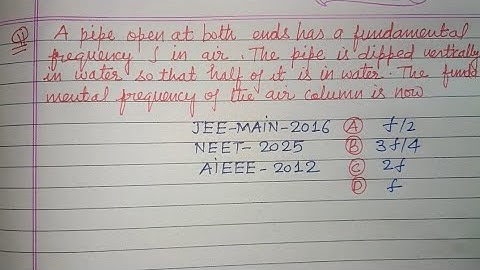 Q1 A pipe open at both ends has a fundamental
frequency f in air. The pipe is dipped vertically
in water so that half of it is in water. The funda
mental frequency of the air column is now
JEE-MAIN-2016 (A) f/2
NEET-2025 (B) 3f/4
AIEEE-2012 (C) 2f
(D) f